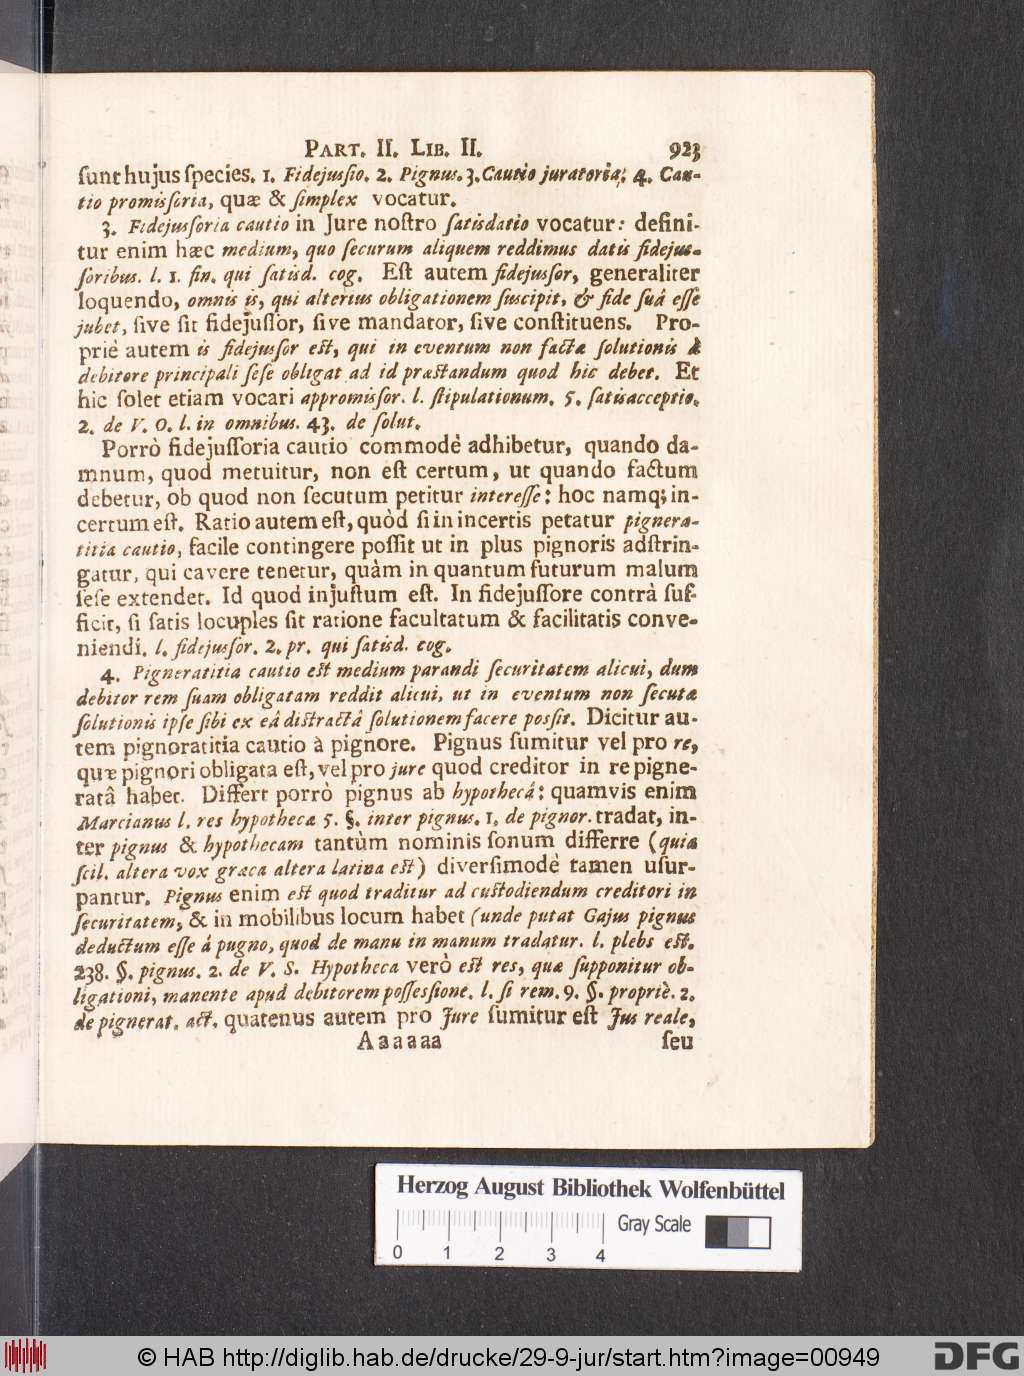 PART. II. LIB. II. 923
ſunt hujus ſpecies. 1. Fidejusſio. 2. Pignus. 3. Cautio juratoria; 4. Cau-
tio promisſoria, quæ & ſimplex vocatur.
3. Fidejusſoria cautio in Jure noſtro ſatisdatio vocatur: defini-
tur enim hæc medium, quo ſecurum aliquem reddimus datis fidejus-
ſoribus. l. 1. fin. qui ſatisd. cog. Eſt autem fidejusſor, generaliter
loquendo, omnis is, qui alterius obligationem ſuscipit, & fide ſuâ eſſe
jubet, ſive ſit fidejuſſor, ſive mandator, ſive conſtituens. Pro-
priè autem is fidejusſor eſt, qui in eventum non factæ ſolutionis à
debitore principali ſeſe obligat ad id præſtandum quod hic debet. Et
hic ſolet etiam vocari appromisſor. l. ſtipulationum. 5. ſatisacceptio.
2. de V. O. l. in omnibus. 43. de ſolut.
Porrò fidejuſſoria cautio commodè adhibetur, quando da-
mnum, quod metuitur, non eſt certum, ut quando factum
debetur, ob quod non ſecutum petitur intereſſe: hoc namq; in-
certum eſt. Ratio autem eſt, quòd ſi in incertis petatur pignera-
titia cautio, facile contingere poſſit ut in plus pignoris adſtrin-
gatur, qui cavere tenetur, quàm in quantum futurum malum
ſeſe extendet. Id quod injuſtum eſt. In fidejuſſore contrà ſuf-
ficit, ſi ſatis locuples ſit ratione facultatum & facilitatis conve-
niendi. l. fidejusſor. 2. pr. qui ſatisd. cog.
4. Pigneratitia cautio eſt medium parandi ſecuritatem alicui, dum
debitor rem ſuam obligatam reddit alicui, ut in eventum non ſecutæ
ſolutionis ipſe ſibi ex eâ diſtractâ ſolutionem facere posſit. Dicitur au-
tem pignoratitia cautio à pignore. Pignus ſumitur vel pro re,
quæ pignori obligata eſt, vel pro jure quod creditor in re pigne-
ratâ habet. Differt porrò pignus ab hypothecâ: quamvis enim
Marcianus l. res hypothecæ 5. §. inter pignus. 1. de pignor. tradat, in-
ter pignus & hypothecam tantùm nominis ſonum differre (quia
ſcil. altera vox græca altera latina eſt) diverſimodè tamen uſur-
pantur. Pignus enim eſt quod traditur ad cuſtodiendum creditori in
ſecuritatem, & in mobilibus locum habet (unde putat Gajus pignus
deductum eſſe à pugno, quod de manu in manum tradatur. l. plebs eſt.
238. §. pignus. 2. de V. S. Hypotheca verò eſt res, quæ ſupponitur ob-
ligationi, manente apud debitorem posſesſione. l. ſi rem. 9. §. propriè. 2.
de pignerat. act. quatenus autem pro Jure ſumitur eſt Jus reale,
Aaaaaa ſeu
Herzog August Bibliothek Wolfenbüttel
Gray Scale
0 1 2 3 4
© HAB http://diglib.hab.de/drucke/29-9-jur/start.htm?image=00949
DFG